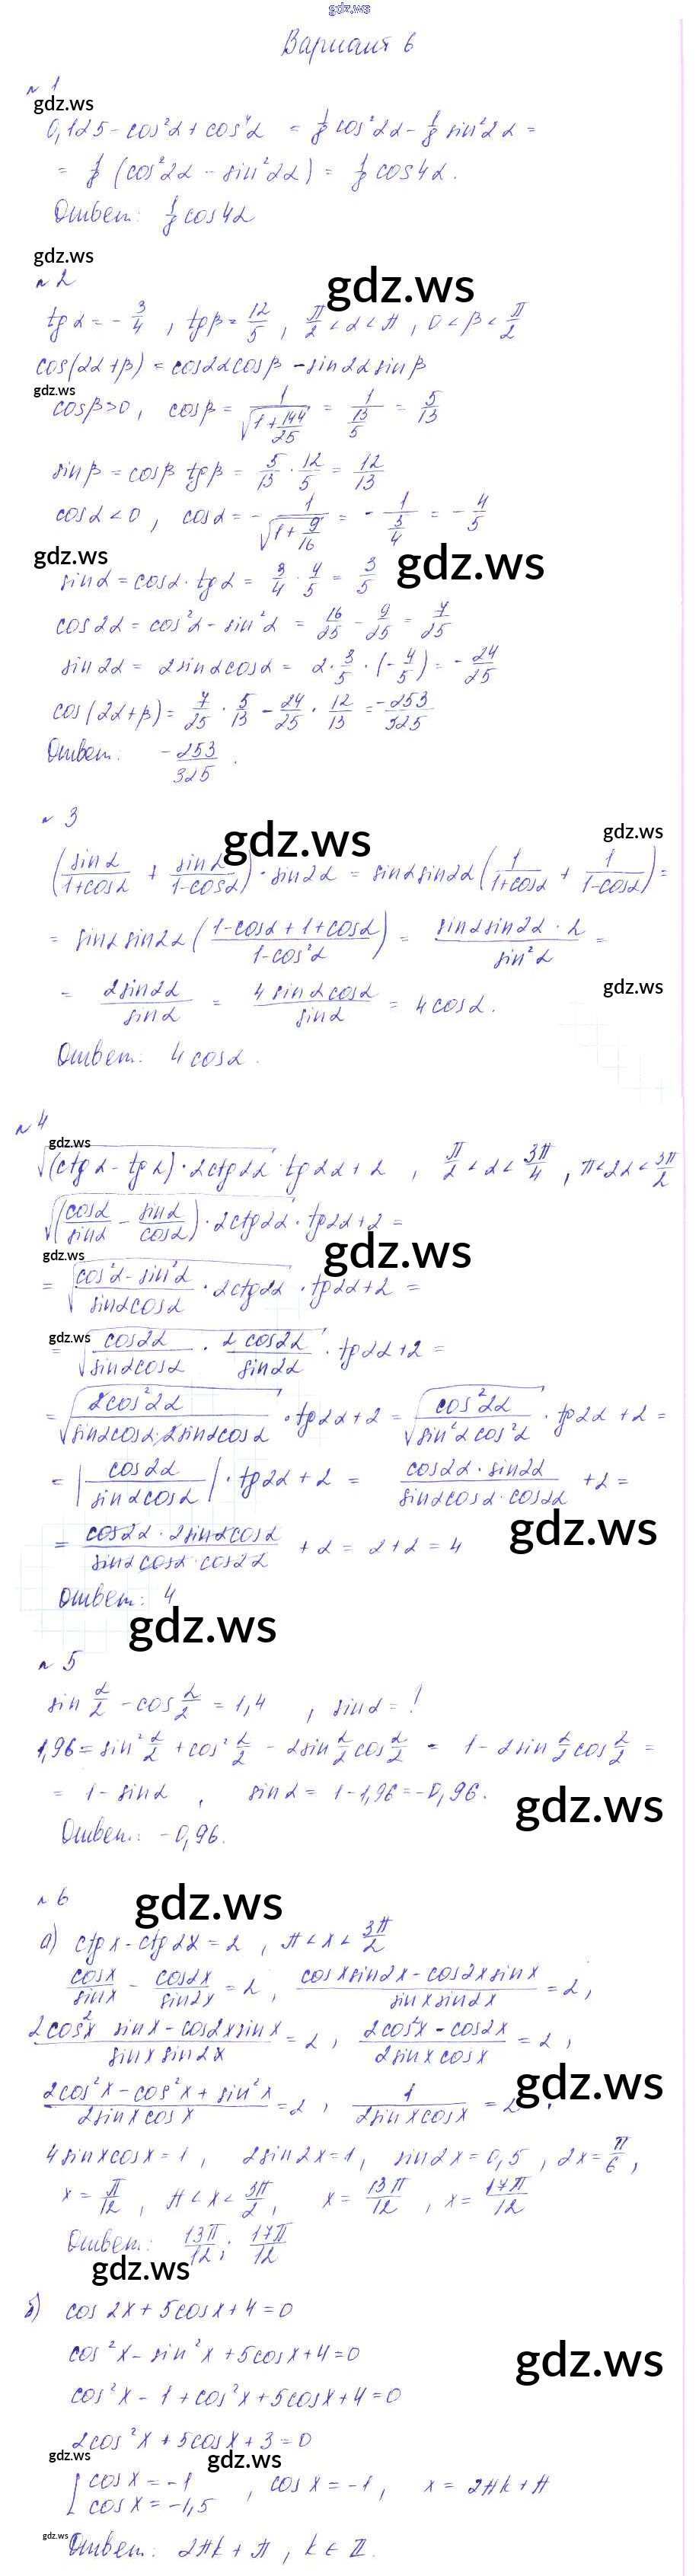 gdz.ws
Вариант 6
n 1
gdz.ws
0,125 - cos²α + cos⁴α = 1/8 cos²2α - 1/8 sin²2α =
= 1/8 (cos²2α - sin²2α) = 1/8 cos4α.
Ответ: 1/8 cos4α
gdz.ws
n 2
gdz.ws
tgα = -3/4, tgβ = 12/5, π/2 < α < π, 0 < β < π/2
cos(2α+β) = cos2αcosβ - sin2αsinβ
gdz.ws
cosβ>0, cosβ = 1/√(1+144/25) = 1/(13/5) = 5/13
sinβ = cosβ tgβ = 5/13 · 12/5 = 12/13
cosα<0, cosα = -1/√(1+9/16) = -1/(5/4) = -4/5
gdz.ws
gdz.ws
sinα = cosα · tgα = 3/4 · 4/5 = 3/5
cos2α = cos²α - sin²α = 16/25 - 9/25 = 7/25
sin2α = 2sinαcosα = 2·3/5·(-4/5) = -24/25
cos(2α+β) = 7/25 · 5/13 - 24/25 · 12/13 = -253/325
Ответ: -253/325.
n 3
gdz.ws
gdz.ws
(sinα/(1+cosα) + sinα/(1-cosα)) · sin2α = sinαsin2α(1/(1+cosα) + 1/(1-cosα)) =
= sinαsin2α((1-cosα+1+cosα)/(1-cos²α)) = (sinαsin2α·2)/sin²α =
gdz.ws
= 2sin2α/sinα = 4sinαcosα/sinα = 4cosα.
Ответ: 4cosα.
n 4
gdz.ws
√((ctgα - tgα)·2ctg2α) · tg2α + 2, π/2 < α < 3π/4, π<2α<3π/2
√((cosα/sinα - sinα/cosα)·2ctg2α) · tg2α+2 =
gdz.ws
gdz.ws
= √((cos²α-sin²α)/(sinαcosα) · 2ctg2α) · tg2α+2 =
gdz.ws
= √(cos2α/(sinαcosα) · 2cos2α/sin2α) · tg2α+2 =
= √(2cos²2α/(sinαcosα·2sinαcosα)) · tg2α+2 = √(cos²2α/(sin²αcos²α)) · tg2α+2 =
= |cos2α/(sinαcosα)| · tg2α+2 = (cos2α·sin2α)/(sinαcosα·cos2α) + 2 =
gdz.ws
= (cos2α·2sinαcosα)/(sinαcosα·cos2α) + 2 = 2+2 = 4
Ответ: 4
gdz.ws
n 5
sin α/2 - cos α/2 = 1,4, sinα = !
1,96 = sin² α/2 + cos² α/2 - 2sin α/2 cos α/2 = 1 - 2sin α/2 cos α/2 =
= 1 - sinα, sinα = 1-1,96 = -0,96.
gdz.ws
Ответ: -0,96.
n 6
gdz.ws
а) ctgx - ctg2x = 2, π < x < 3π/2
cosx/sinx - cos2x/sin2x = 2, (cosxsin2x - cos2xsinx)/(sinxsin2x) = 2,
(2cos²x sinx - cos2xsinx)/(sinxsin2x) = 2, (2cos²x - cos2x)/(2sinxcosx) = 2,
gdz.ws
(2cos²x - cos²x + sin²x)/(2sinxcosx) = 2, 1/(2sinxcosx) = 2,
4sinxcosx = 1, 2sin2x = 1, sin2x = 0,5, 2x = π/6,
x = π/12, π < x < 3π/2, x = 13π/12, x = 17π/12
Ответ: 13π/12; 17π/12
gdz.ws
б) cos2x + 5cosx + 4 = 0
cos²x - sin²x + 5cosx + 4 = 0
gdz.ws
cos²x - 1 + cos²x + 5cosx + 4 = 0
2cos²x + 5cosx + 3 = 0
gdz.ws
gdz.ws
[cosx = -1, cosx = -1, x = 2πk + π
cosx = -1,5
gdz.ws
Ответ: 2πk + π, k ∈ Z.